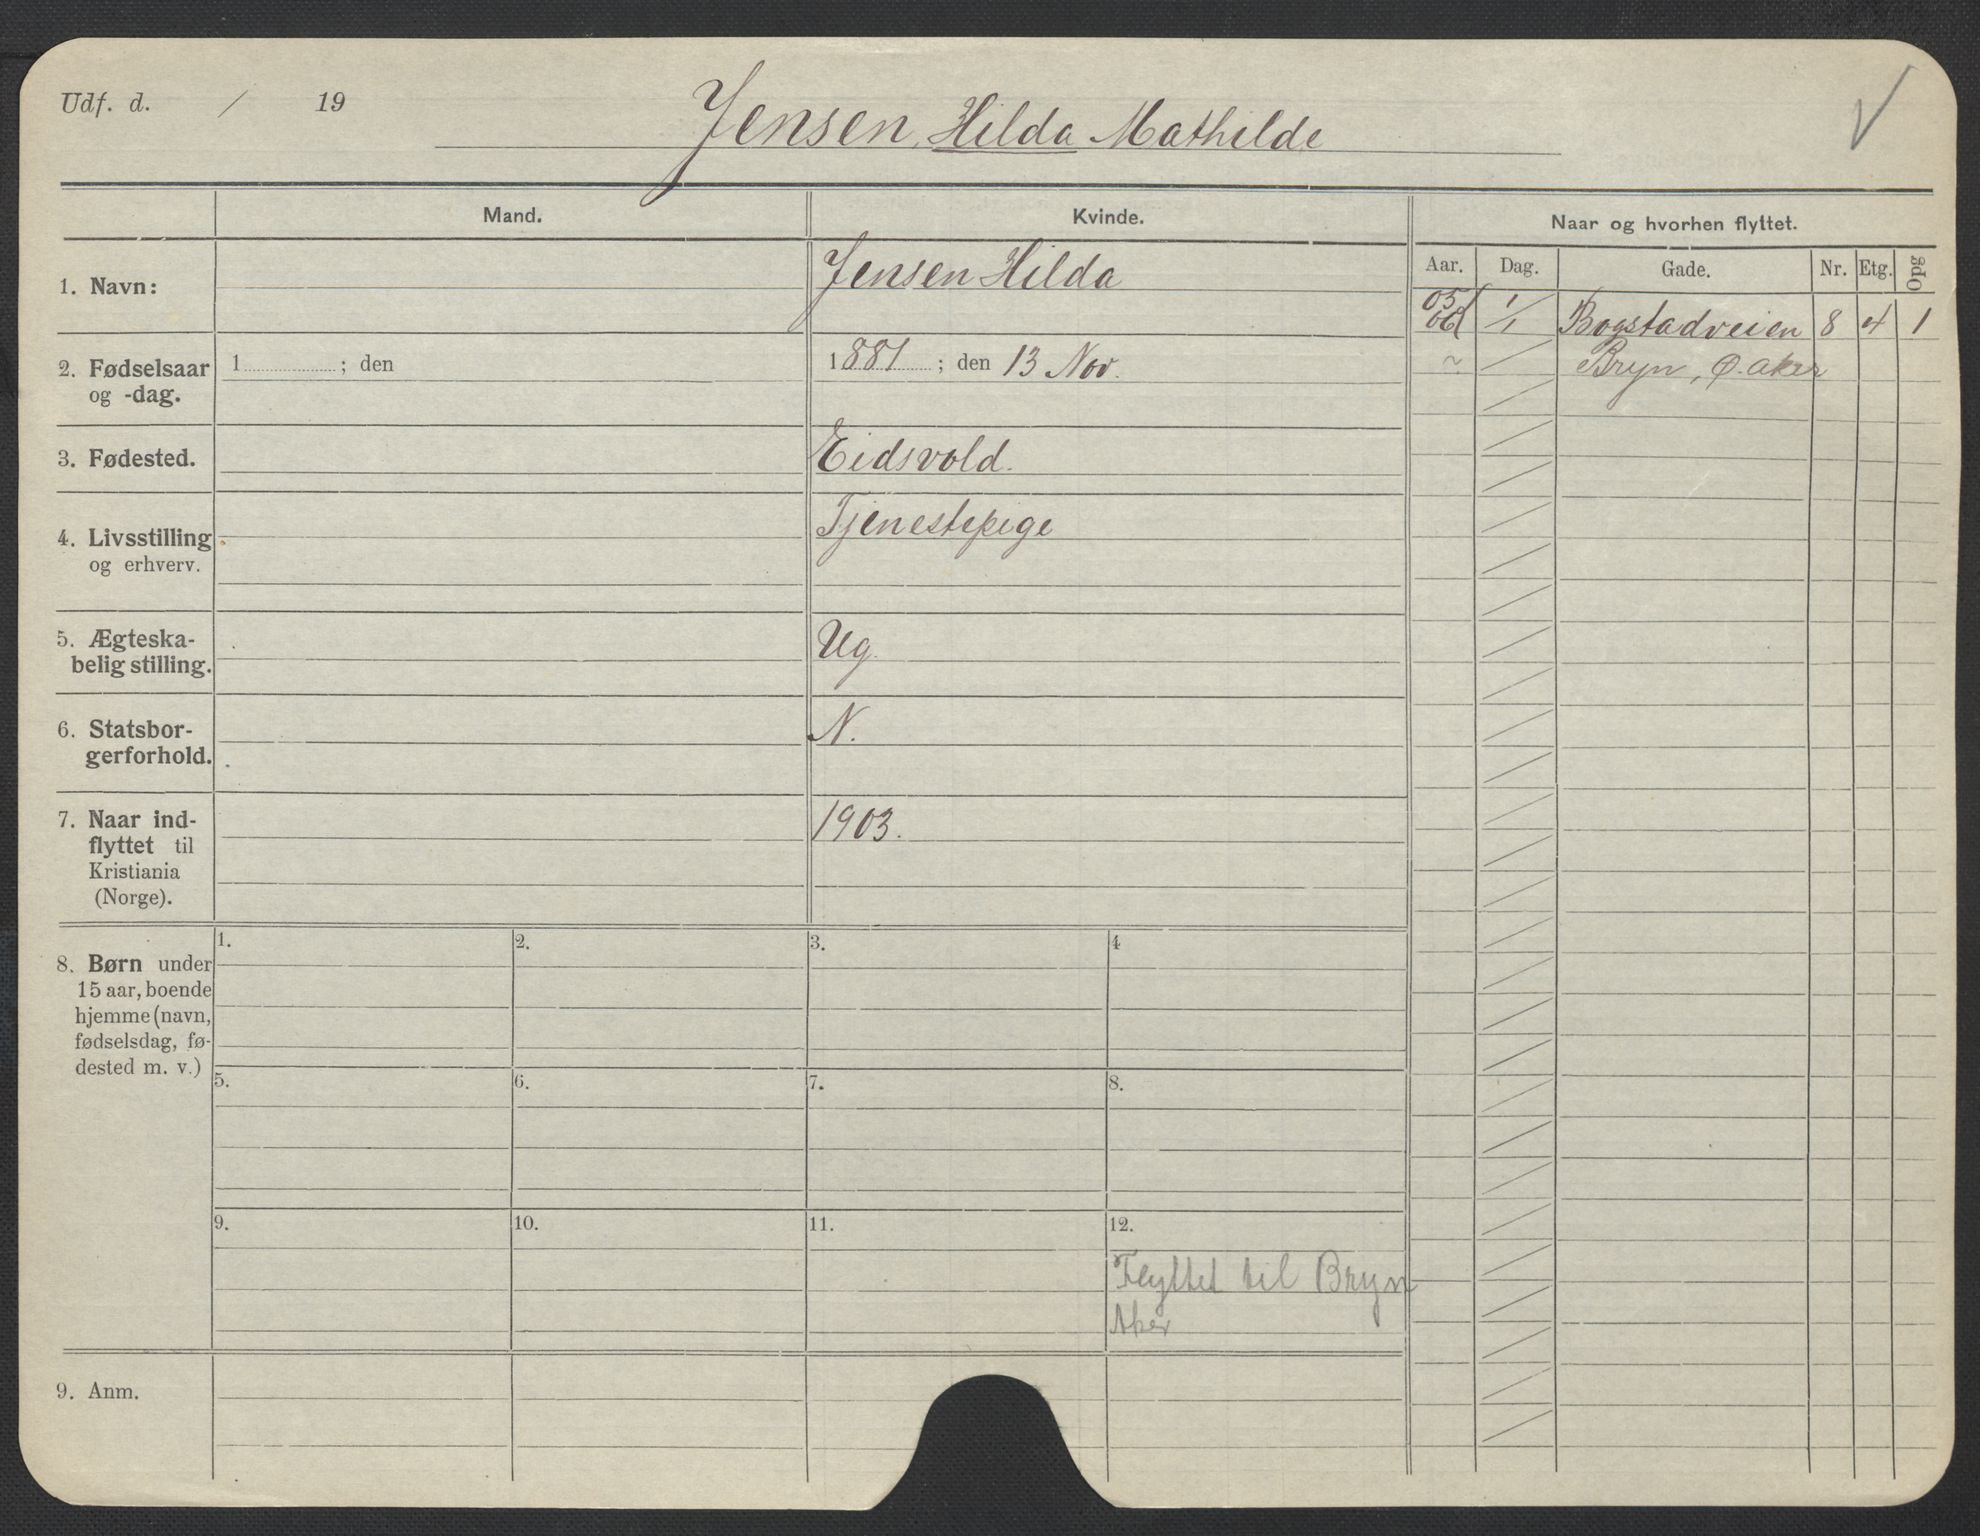 Udf. d. / 19
Jensen, Hilda Mathilde
Mand.
Kvinde.
Naar og hvorhen flyttet.
Aar. Dag. Gade. Nr. Etg. Opg
1. Navn:
Jensen Hilda
05 1/
06 /1 Bogstadveien 8 4 1
~ / Bryn, Ø. Aker
2. Fødselsaar
og -dag.
1 ; den
1881 ; den 13 Nov.
3. Fødested.
Eidsvold.
4. Livsstilling
og erhverv.
Tjenestepige
5. Ægteska-
belig stilling.
Ug.
6. Statsbor-
gerforhold.
N.
7. Naar ind-
flyttet til
Kristiania
(Norge).
1903.
8. Børn under
15 aar, boende
hjemme (navn,
fødselsdag, fø-
dested m. v.)
1. 2. 3. 4
5. 6. 7. 8.
9. 10. 11. 12.
Flyttet til Bryn
Aker
9. Anm.